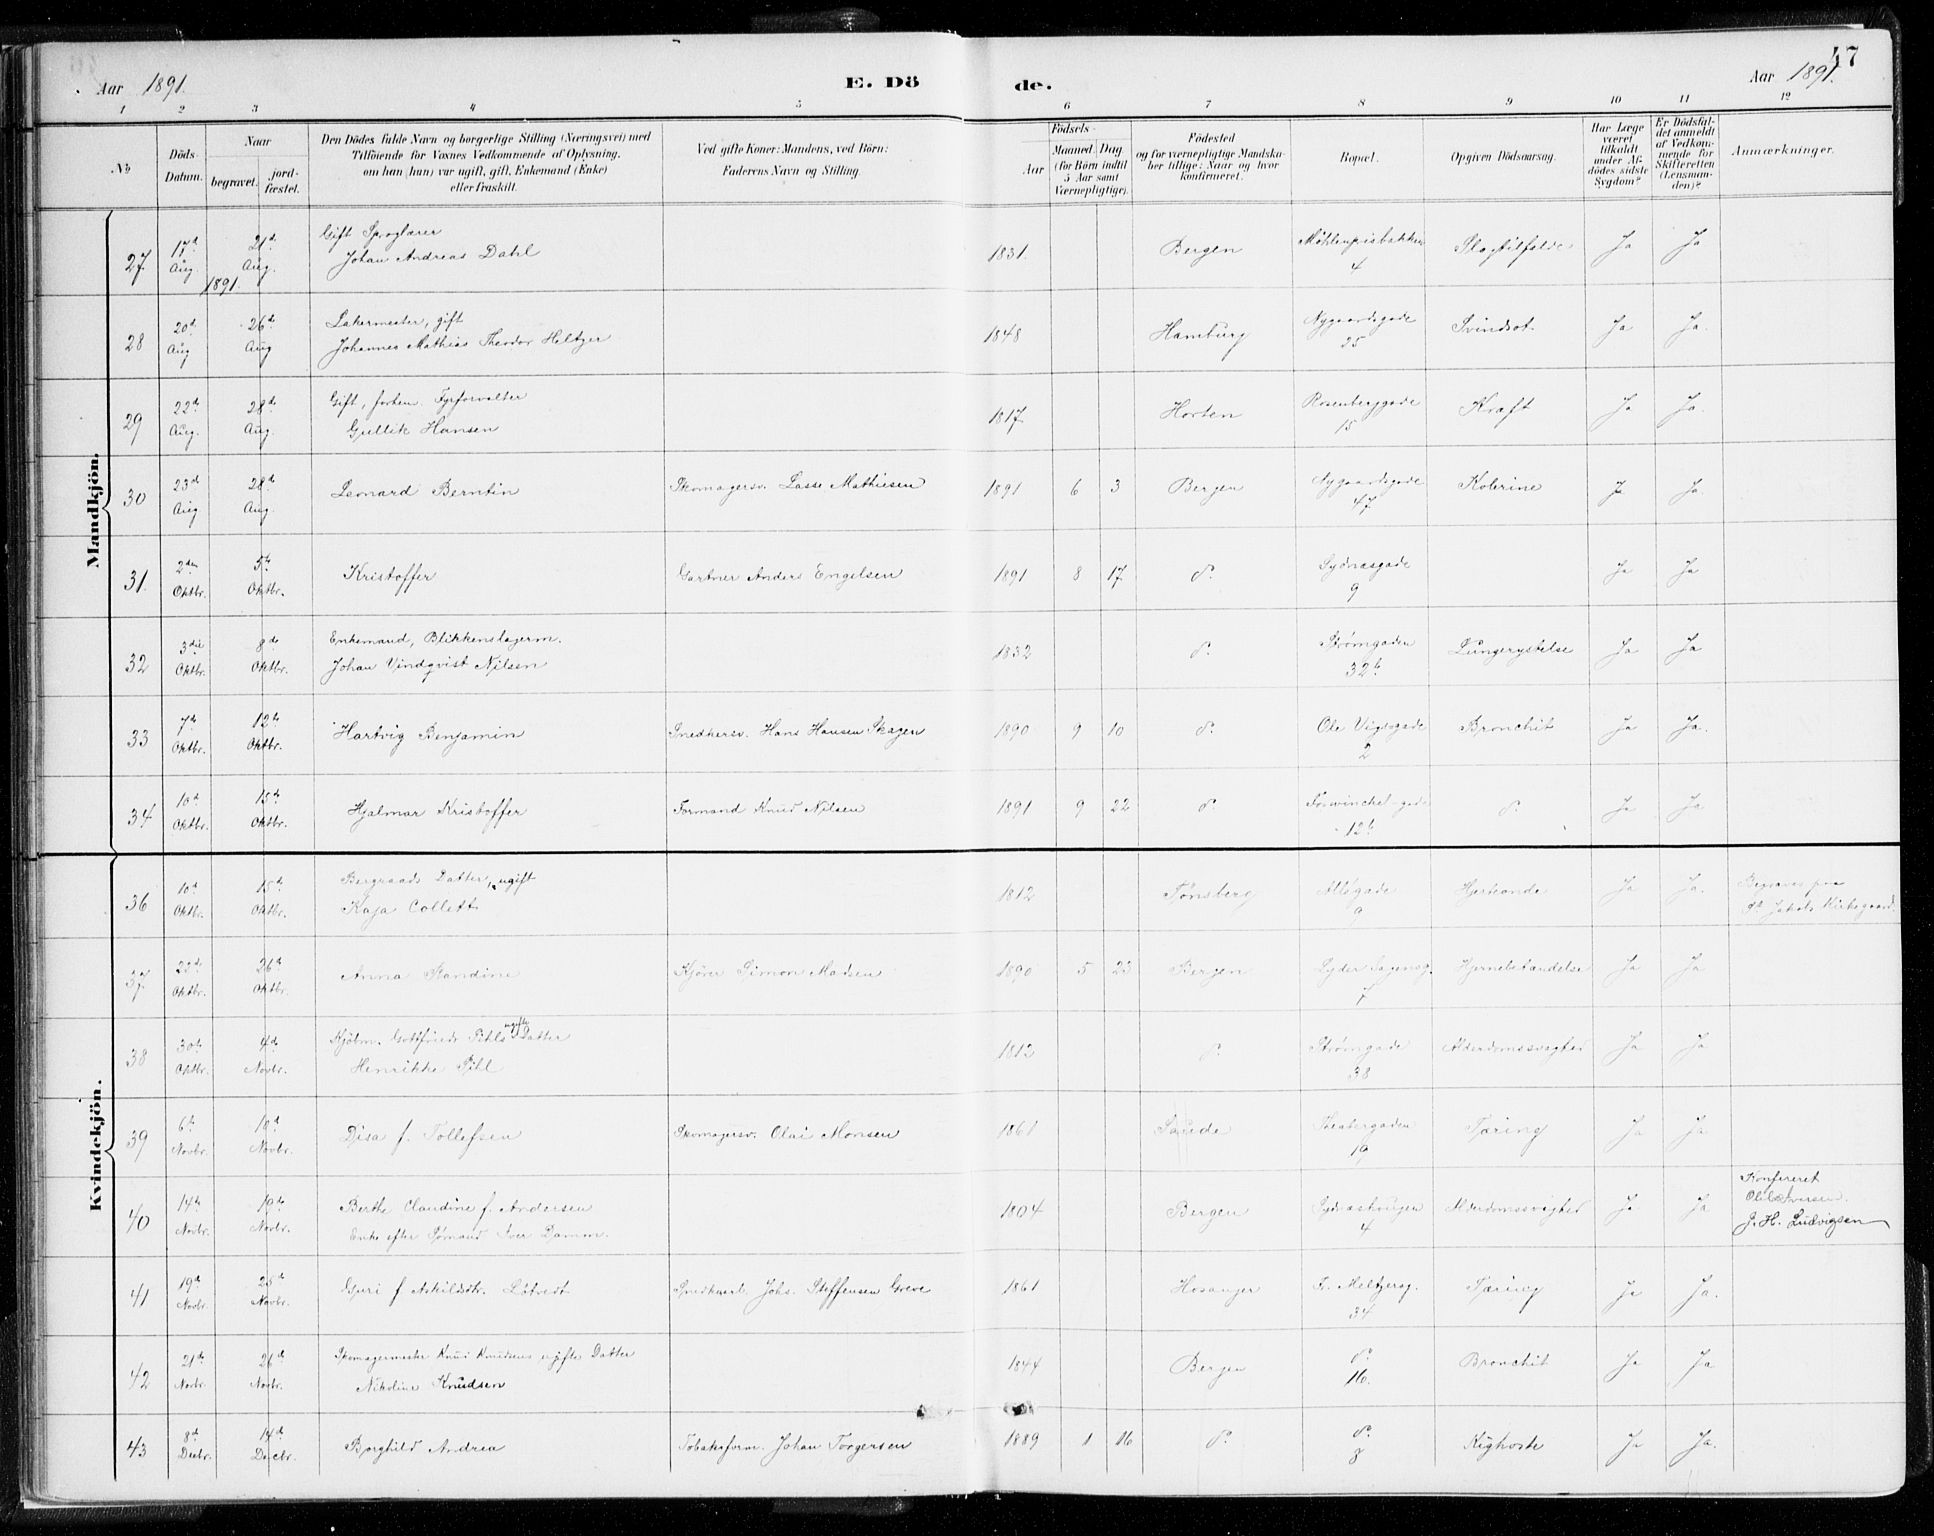 47
Aar 1891.
E. Dö
de.
Aar 1891.
1 2 3 4 5 6 7 8 9 10 11 12
No
Döds-Datum.
Naar
begravet.
jord-fæstet.
Den Dödes fulde Navn og borgerlige Stilling (Næringsvei) med
Tilföiende for Voxnes Vedkommende af Oplysning,
om han (hun) var ugift, gift, Enkemand (Enke)
eller fraskilt.
Ved gifte Koner: Mandens, ved Börn:
Faderens Navn og Stilling.
Födsels-
Aar
Maaned. Dag
(for Börn indtil
5 Aar samt
Værnepligtige).
Födested
og for værnepligtige Mandska-
ber tillige: Naar og hvor
konfirmeret.
Bopæl.
Opgiven Dödsaarsag.
Har Læge
været
tilkaldt
under Af-
dödes sidste
Sygdom?
Er Dödsfal-
det anmeldt
af Vedkom-
mende for
Skifteretten
(Lensman-
den)?
Anmærkninger.
Mandkjön.
27 17d Aug. 21d Aug. 1891. Gift Sproglærer
Johan Andreas Dahl 1831. Bergen 4 Slagtilfælde Ja Ja
28 20d Aug 26de Aug gift
Johannes Mathias Theodor Heltzer 1848 Hamburg Nygaardsgade 25 Svindsot. Ja Ja.
29 22d Aug. 28d Aug. Gift, forhen. Fyrforvalter
Gullik Hansen 1817 Horten Rosenberggade 15 Kræft Ja Ja.
30 23d Aug 28d Aug. Leonard Berntin Skomagersv. Lasse Mathiesen 1891 6 3 Bergen Nygaardsgade 47 Kolerine Ja Ja
31. 2den Oktbr. 5te Oktbr. Kristoffer Gartner Anders Engelsen 1891 8 17 do Sydnæsgade 9 Ja Ja
32 3die Oktbr. 8de Oktbr. Enkemand, Blikkenslagerm.
Johan Vindqvist Nilsen 1832 do Strömgaden 32b Ja Ja
33 7de Oktbr. 12te Oktbr. Hartvig Benjamin Snedkersv. Hans Hansen Skagen 1890 9 10 do Ole Vigsgade 2 Bronchit Ja Ja.
34 10d Oktbr. 15de Oktbr. Hjalmar Kristoffer Formand Knud Nilsen 1891 9 22 do 12b do Ja Ja
Kvindekjön.
36 10d Oktbr. 15de Oktbr. Bergraads Datter, ugift
Kaja Collett 1812 Tönsberg Allégade 9 Hjerteonde Ja Ja. Begraves paa
St. Jakobs Kirkegaard.
37 Oktbr. 26d Oktbr. Anna Kjörer Simon Madsen 1890 5 23 Bergen Lyder Sagensg. 7 Ja Ja
38 30te Oktbr. 4de Novbr. Kjöbm. Gottfrieds Pihls ugifte Datter
Henrikke Pihl 1812 do Strömgade 38 Alderdomssvaghed Ja Ja
39 6te Novbr. Novbr. Disa f. Tollefsen Skomagersv. Olai Monsen 1861 Theatergaden 19 Tæring Ja Ja
40 14de Novbr. Novbr. Berthe Claudine f. Andersen
Enke efter Formand Iver Damm. 1804 Bergen Sydnæshaugen 4 Alderdomssvaghed Ja Ja Konfereret
J. H. Ludvigsen
41 19d Novbr. 25de Novbr. Guri f Askildsdtr. Johs. Steffensen Greve 1861 Hosanger Fr. Meltzersg. 34 Tæring Ja Ja.
42 21d Novbr. 26d Novbr. Skomagermester Knud Knudsens ugifte Datter
Nikoline Knudsen 1844 Bergen do 16. Bronchit Ja Ja
43 8d Decbr. 14d Decbr. Borghild Andrea Tobaksform. Johan Torgersen 1889 1 16 do do 8 Kighoste Ja Ja.